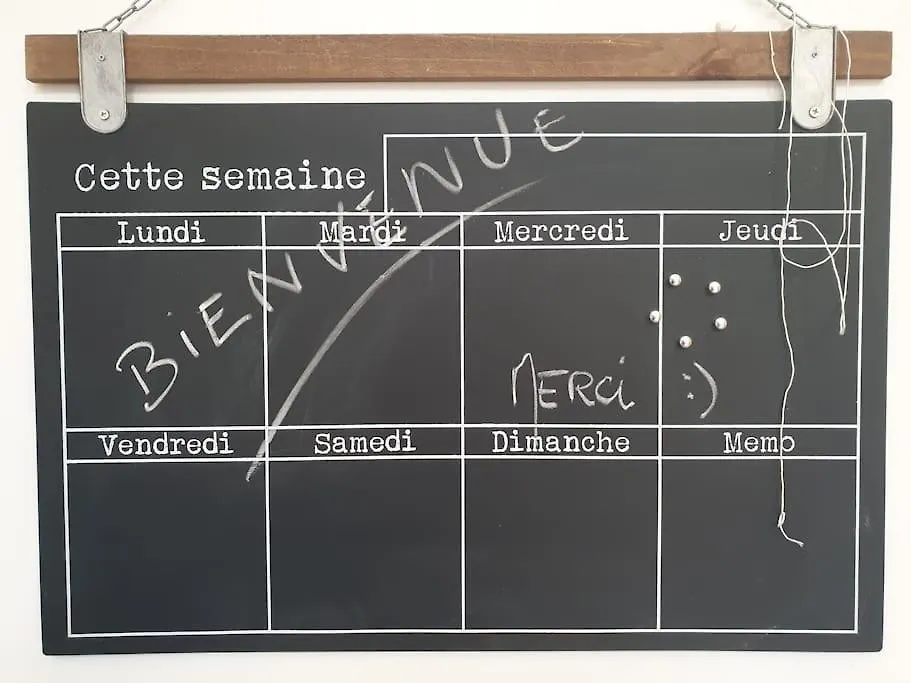 Cette semaine
BiENVENUE
Lundi Mardi Mercredi Jeudi
MERCi :)
Vendredi Samedi Dimanche Memo